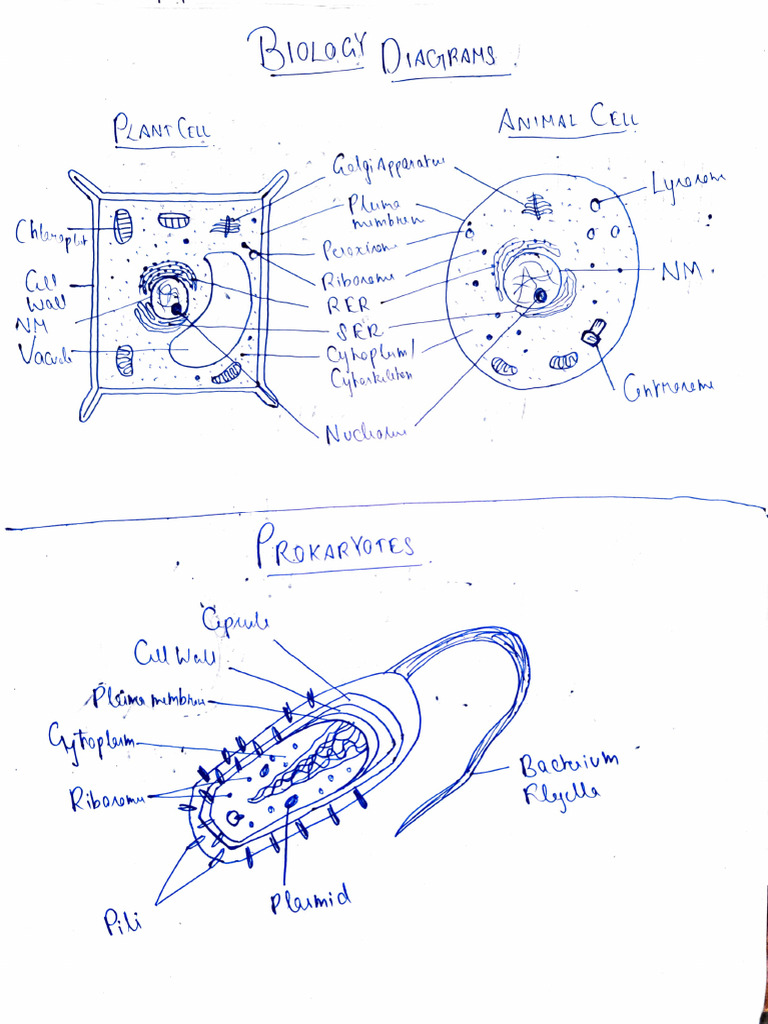 BIOLOGY DIAGRAMS
PLANT CELL
ANIMAL CELL
Golgi Apparatus
Lysosome
Plasma
membrane
Chloroplast
Peroxisome
Ribosome
NM
Cell
Wall
RER
NM
SER
Vacuole
Cytoplasm/
Cytoskeleton
Centrosome
Nucleolus
PROKARYOTES
Capsule
Cell Wall
Plasma membrane
Cytoplasm
Ribosomes
Bacterium
Flagella
Plasmid
Pili